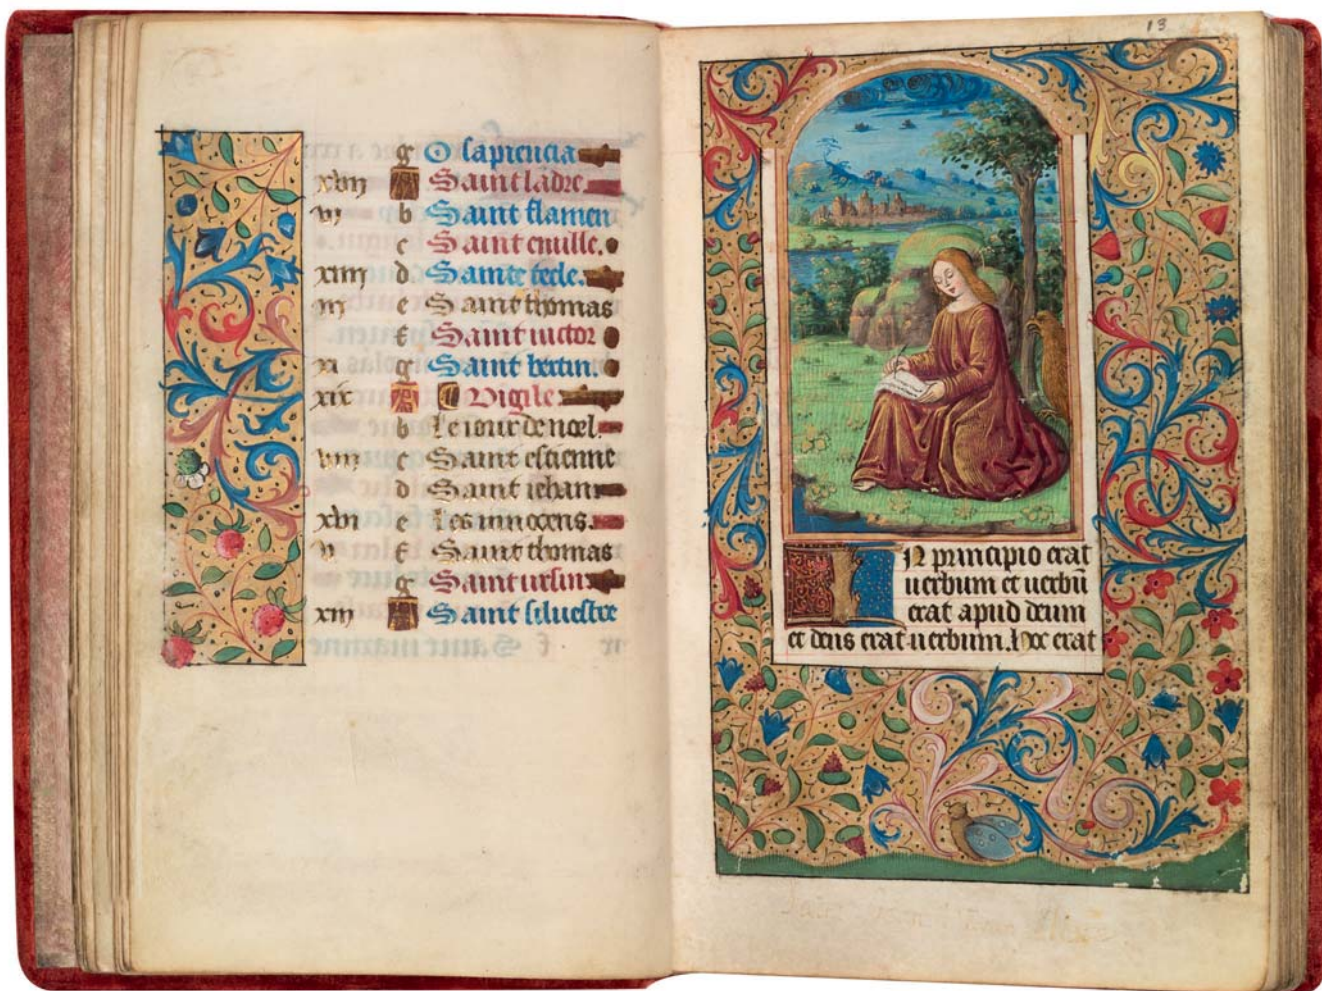 g O sapiencia
xviij A Saint ladre.
vj b Saint flamen
c Saint emille.
xiiij d Sainte tecle.
iij e Saint thomas
f Saint victor
xi g Saint bertin.
xix A Vigile
b Le iour de noel.
viij c Saint estienne
d Saint iehan
xvi e Les innocens.
v f Saint thomas
g Saint ursin
xiij A Saint silvestre
13
IN principio erat
uerbum et uerbū
erat apud deum
et deus erat uerbum. Hoc erat